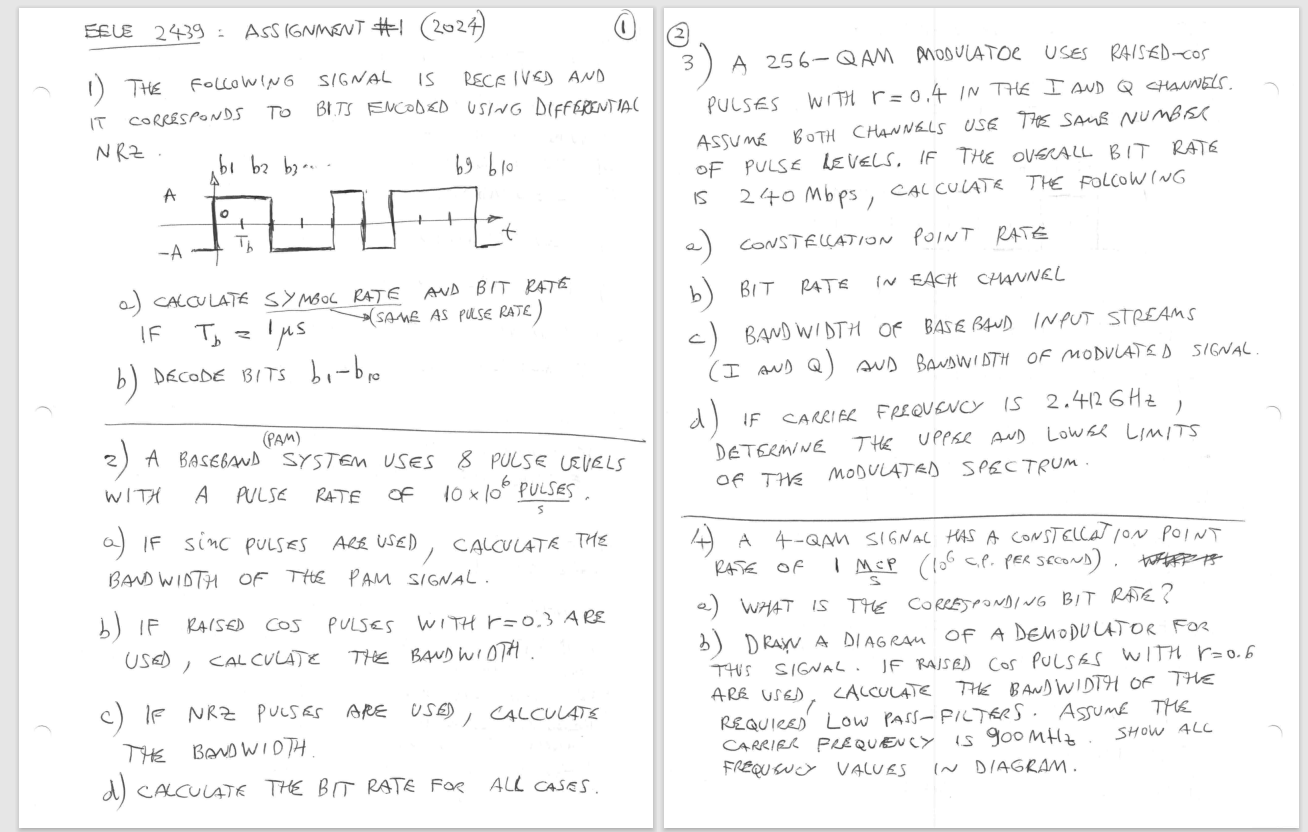 EELE 2439 : ASSIGNMENT #1 (2024)
①
1) THE FOLLOWING SIGNAL IS RECEIVED AND
IT CORRESPONDS TO BITS ENCODED USING DIFFERENTIAL
NRZ.
b1 b2 b3.... b9 b10
A
0
Tb
t
-A
a) CALCULATE SYMBOL RATE AND BIT RATE
(SAME AS PULSE RATE)
IF Tb = 1 μs
b) DECODE BITS b1-b10
(PAM)
2) A BASEBAND SYSTEM USES 8 PULSE LEVELS
WITH A PULSE RATE OF 10×10⁶ PULSES/S.
a) IF sinc PULSES ARE USED, CALCULATE THE
BANDWIDTH OF THE PAM SIGNAL.
b) IF RAISED COS PULSES WITH r=0.3 ARE
USED, CALCULATE THE BANDWIDTH.
c) IF NRZ PULSES ARE USED, CALCULATE
THE BANDWIDTH.
d) CALCULATE THE BIT RATE FOR ALL CASES.
②
3) A 256-QAM MODULATOR USES RAISED-COS
PULSES WITH r=0.4 IN THE I AND Q CHANNELS.
ASSUME BOTH CHANNELS USE THE SAME NUMBER
OF PULSE LEVELS. IF THE OVERALL BIT RATE
IS 240 Mbps, CALCULATE THE FOLLOWING
a) CONSTELLATION POINT RATE
b) BIT RATE IN EACH CHANNEL
c) BANDWIDTH OF BASEBAND INPUT STREAMS
(I AND Q) AND BANDWIDTH OF MODULATED SIGNAL.
d) IF CARRIER FREQUENCY IS 2.412 GHz,
DETERMINE THE UPPER AND LOWER LIMITS
OF THE MODULATED SPECTRUM.
4) A 4-QAM SIGNAL HAS A CONSTELLATION POINT
RATE OF 1 MCP/S (10⁶ C.P. PER SECOND). WHAT IS
a) WHAT IS THE CORRESPONDING BIT RATE?
b) DRAW A DIAGRAM OF A DEMODULATOR FOR
THIS SIGNAL. IF RAISED COS PULSES WITH r=0.6
ARE USED, CALCULATE THE BANDWIDTH OF THE
REQUIRED LOW PASS-FILTERS. ASSUME THE
CARRIER FREQUENCY IS 900 MHz. SHOW ALL
FREQUENCY VALUES IN DIAGRAM.